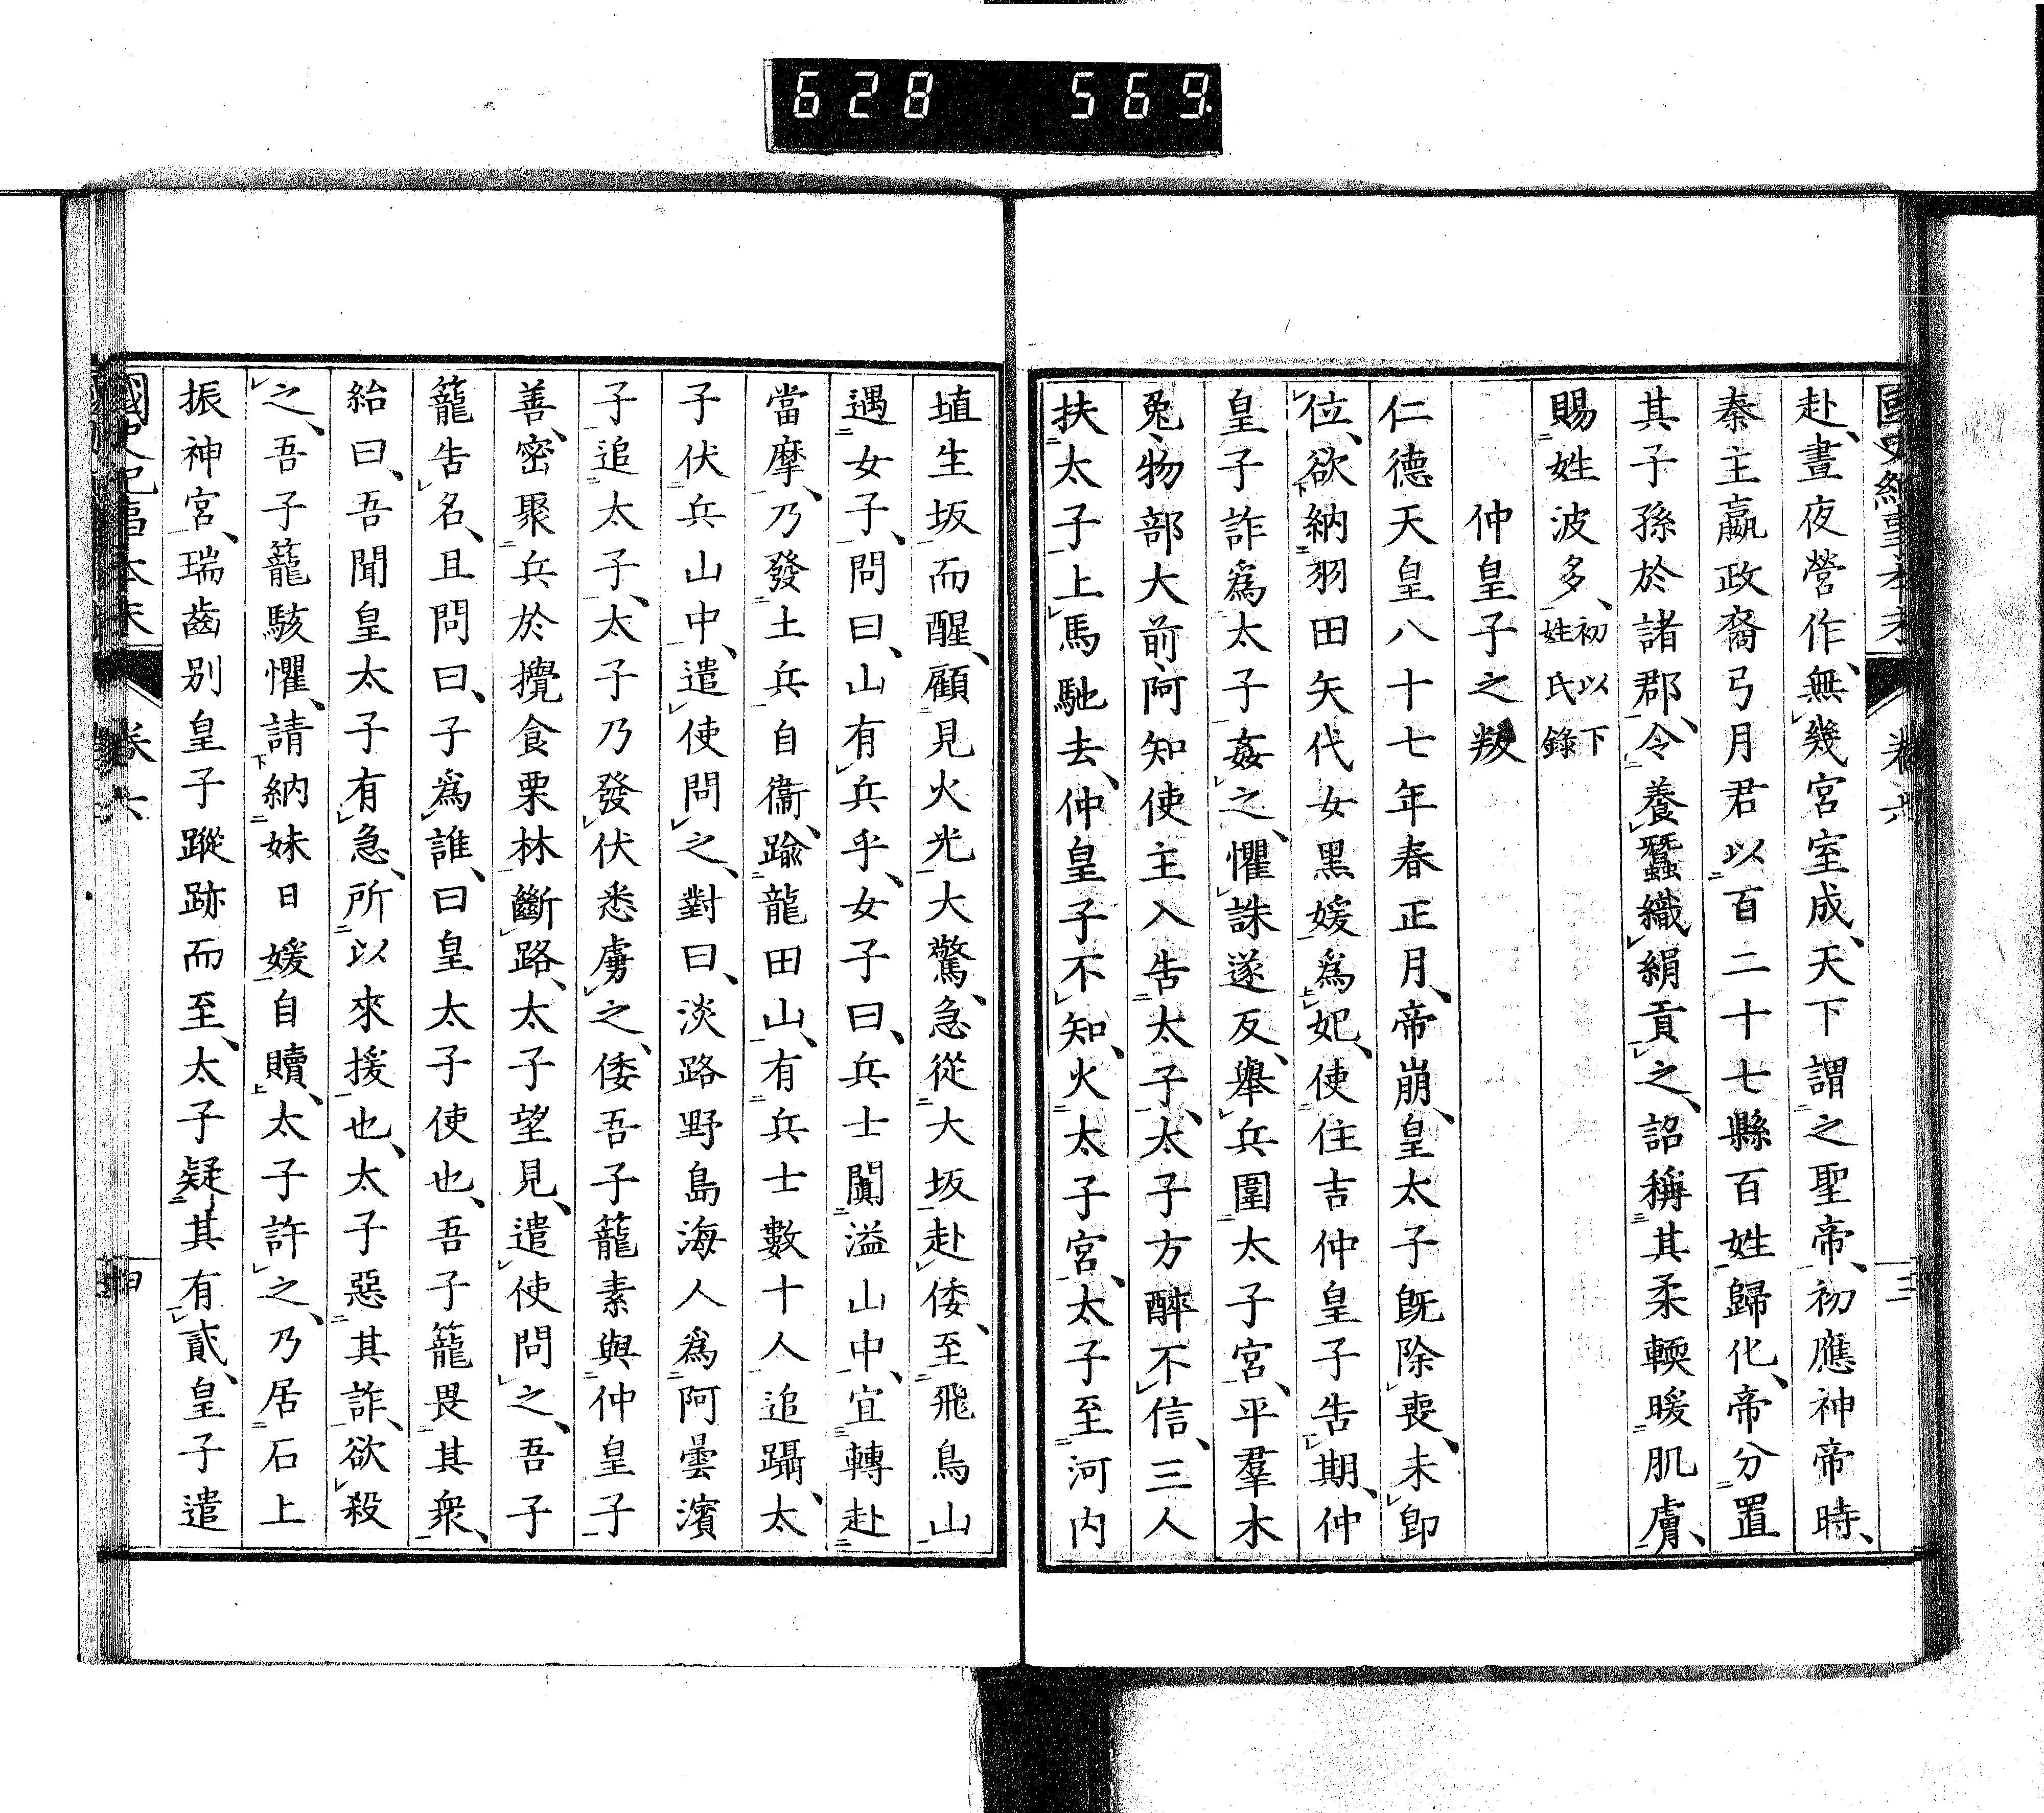 628 569.
國史紀事本末 卷六 三
赴、晝夜營作、無幾宮室成、天下謂之聖帝、初應神帝時、
秦主嬴政裔弓月君以百二十七縣百姓歸化、帝分置
其子孫於諸郡、令養蠶織絹貢之、詔稱其柔輭暖肌膚、
賜姓波多、初以下姓氏錄
仲皇子之叛
仁德天皇八十七年春正月、帝崩、皇太子旣除喪、未卽
位、欲納羽田矢代女黑媛爲妃、使住吉仲皇子告期、仲
皇子詐爲太子姦之、懼誅遂反、舉兵圍太子宮、平羣木
兔、物部大前、阿知使主入告太子、太子方醉不信、三人
扶太子上馬馳去、仲皇子不知、火太子宮、太子至河內
埴生坂而醒、顧見火光大驚、急從大坂赴倭、至飛鳥山
遇女子、問曰、山有兵乎、女子曰、兵士闐溢山中、宜轉赴
當摩、乃發土兵自衞、踰龍田山、有兵士數十人追躡、太
子伏兵山中、遣使問之、對曰、淡路野島海人爲阿曇濱
子追太子、太子乃發伏悉虜之、倭吾子籠素與仲皇子
善、密聚兵於攪食栗林斷路、太子望見、遣使問之、吾子
籠告名、且問曰、子爲誰、曰皇太子使也、吾子籠畏其衆、
給曰、吾聞皇太子有急、所以來援也、太子惡其詐、欲殺
之、吾子籠駭懼、請納妹日媛自贖、太子許之、乃居石上
振神宮、瑞齒別皇子蹤跡而至、太子疑其有貳、皇子遣
國史紀事本末 卷六 四